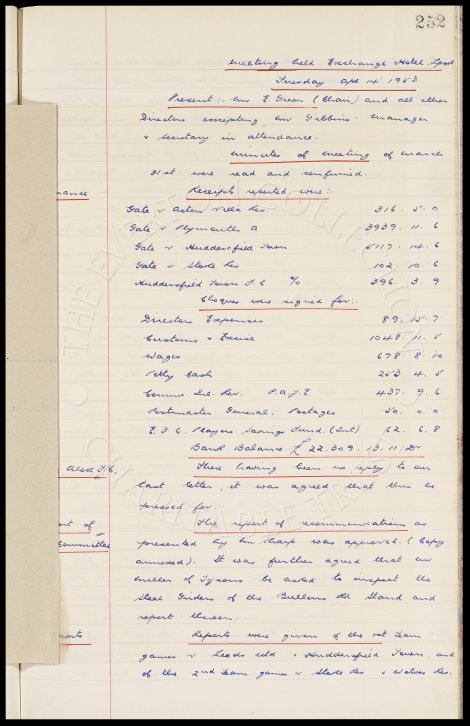 252
Meeting held Exchange Hotel L'pool
Tuesday Apl 14th 1953
Present:- Mr E. Green (Chair) and all other
Directors excepting Mr Gibbins. Manager
& Secretary in attendance.
Minutes of Meeting of March
31st were read and confirmed.
Receipts reported were:-
Gate v Aston Villa Res. 316. 5. 0
Gate v Plymouth A 3939. 11. 6
Gate v Huddersfield Town 5117. 14. 6
Gate v Stoke Res 102. 10. 6
Huddersfield Town F.C. % 396. 3. 9
Cheques were signed for:-
Directors Expenses 89. 15. 7
Customs & Excise 1048. 11. 5
Wages 678. 8. 10
Petty Cash 253. 4. 5
Commr. Inl. Rev. P.A.Y.E. 437. 9. 6
Postmaster General. Postages 50. 0. 0
E.F.C. Players Savings Fund. (Int) 62. 6. 8
Bank Balance £22,309. 13. 11 Dr
Alex F.C.
There having been no reply to our
last letter, it was agreed that this be
pressed for.
rt of
Committee
The report of recommendations as
presented by Mr Sharp was approved. (Copy
annexed). It was further agreed that Mr
of Tysons be asked to inspect the
Steel Girders of the Bullens Rd Stand and
report thereon.
Reports were given of the 1st Team
games v Leeds Utd & Huddersfield Town and
of the 2nd Team games v Stoke Res & Wolves Res.
THE EVERTON COLLECTION
CHARITABLE TRUST